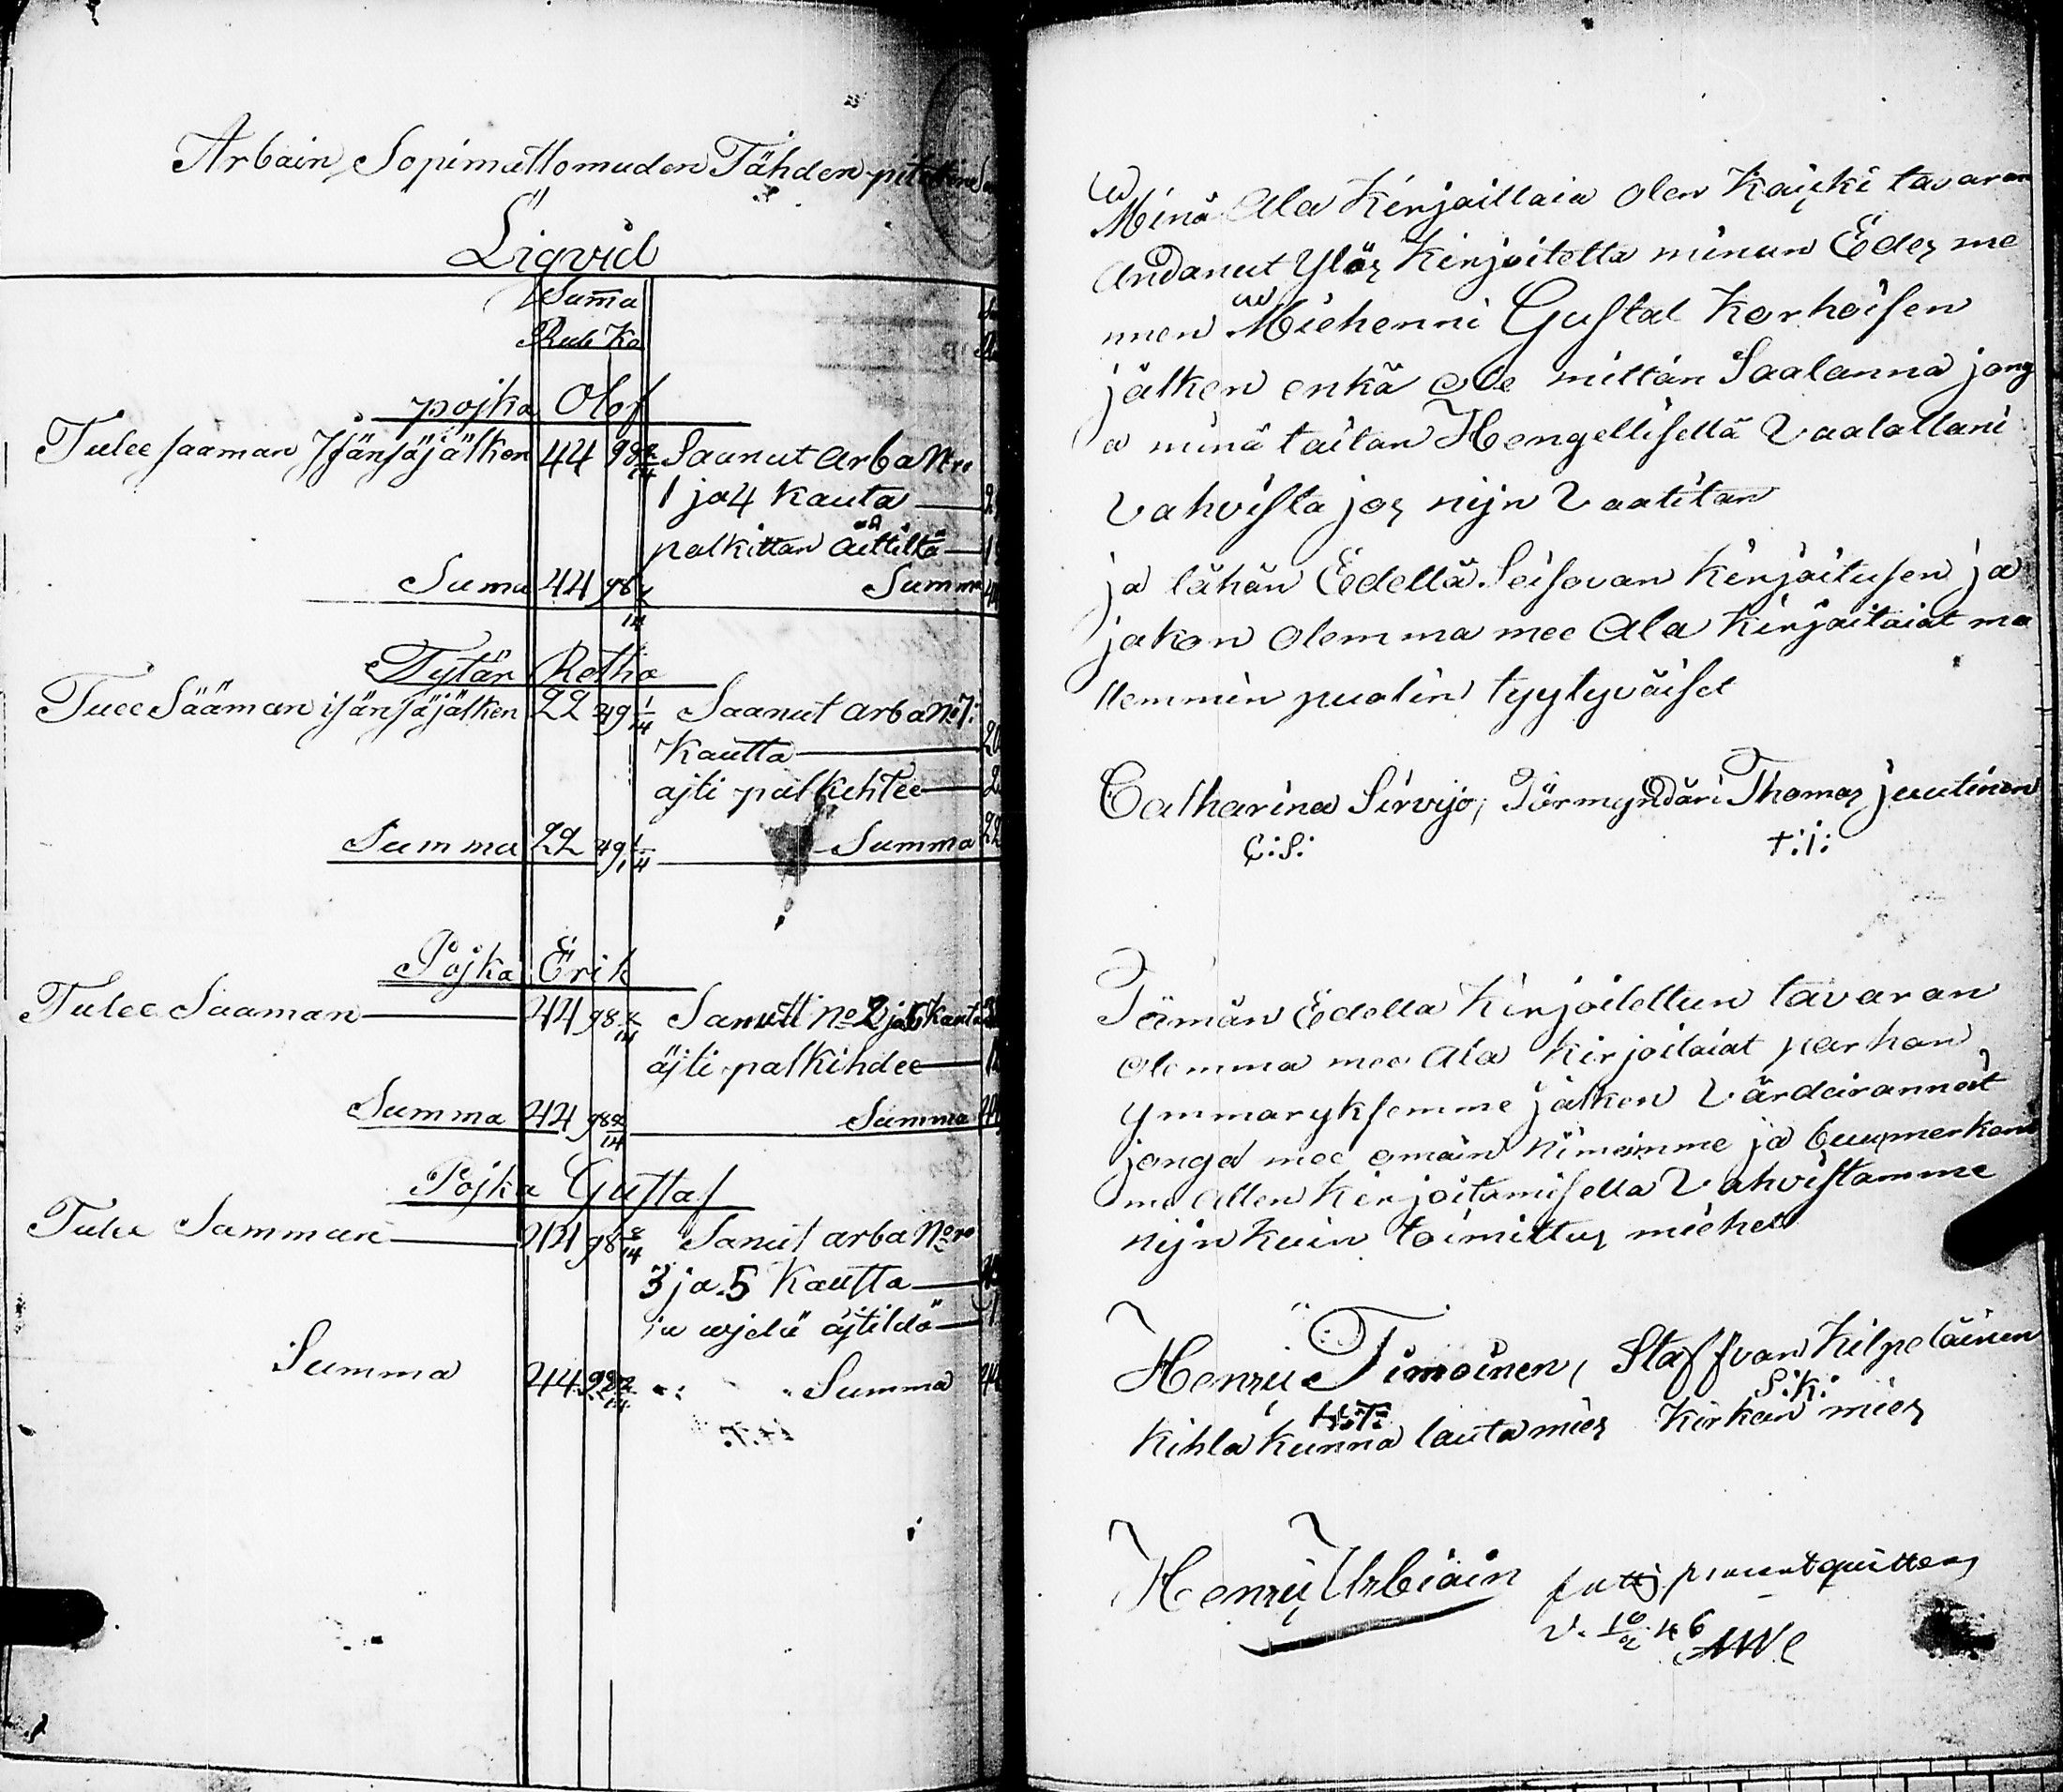 Arbain Sopimattomuden Tähden
Liqvid
Summa
Rub Ko
pojka Olof
Tulee saaman Isänsäjälken 44 98 2/14 Saanut arba Nro
1 ja 4 kauta
palkittan äittiltä
Suma 44 98 2/14 Summa
Tytär Retha
Tuee Sääman isänsäjälken 22 49 1/14 Saanut arba No 7:
Kautta
ajti palkehtee
Summa 22 49 1/14 Summa
Pojka Erik
Tulee Saaman 44 98 2/14 Sanutt No 2 ja 6 kauta
äjti palkihdee
Summa 44 98 2/14 Summa
Pojka Gustaf
Tulee Samman 44 98 2/14 Sanut arba Nro
3 ja 5 Kautta
äjtildä
Summa 44 98 2/14 Summa
Minä Ala Kirjaillaia olen Kaicki tavaran
andanut Ylös Kirjoitetta minun Edes me
nnen Miehenni Gustal Korhoisen
jälken enkä ole mittän Saalanna jong
a minä taitan Hengellisellä Vaalallani
vahvista jos nijn Vaatitan
ja tähän Edellä Seisovan kirjoitusen ja
jakon olemma mee Ala kirjaitaiat mo
llemmin puolin tyytyväiset
Catharina Sirvijo, Förmyndäri Thomas juutinen
C:S: T:J:
Tämän Edella Kirjoitettun tavaran
olemma mee ala kirjoitaiat parhan
ymmaryksemme jälken Värdeirannet
jonga mee omain nimeimme ja buumerkein
me allen kirjoitamisella Vahvistamme
nijn kuin toimittus miehet
Henrij Timoinen, Staffvan Kilpeläinen
H:T: S:K:
Kihla kunna lautamies Kirkan mies
Henrij Urbiain fattig procent quitteras
d. 10/2 46